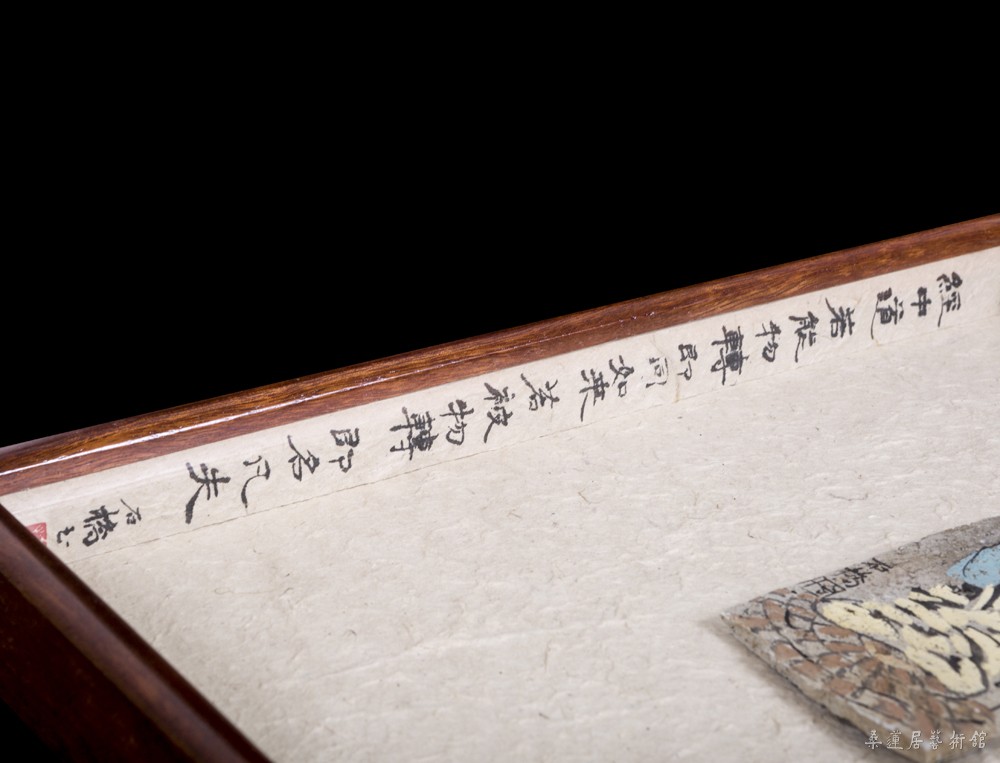 經中道若能物轉即同如來若被物轉即名凡夫
石橋
桑蓮居藝術館